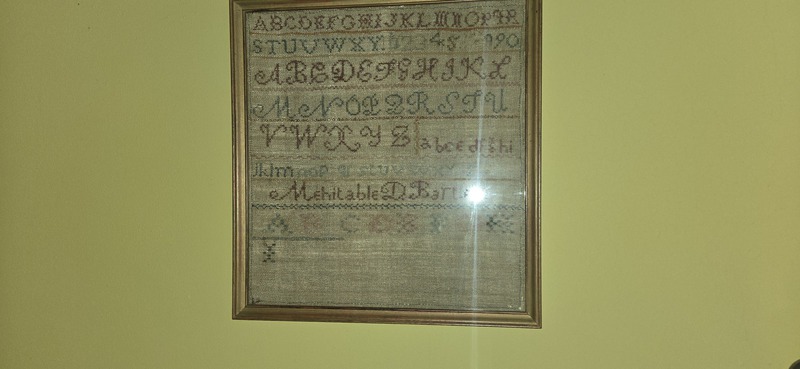 ABCDEFGHIJKLMNOPQR
STUVWXYZ 12345 890
ABCDEFGHIJKL
MNOPQRSTU
VWXYZ abcdefghi
jklmnopqrstuvwxy
Mehitable D.